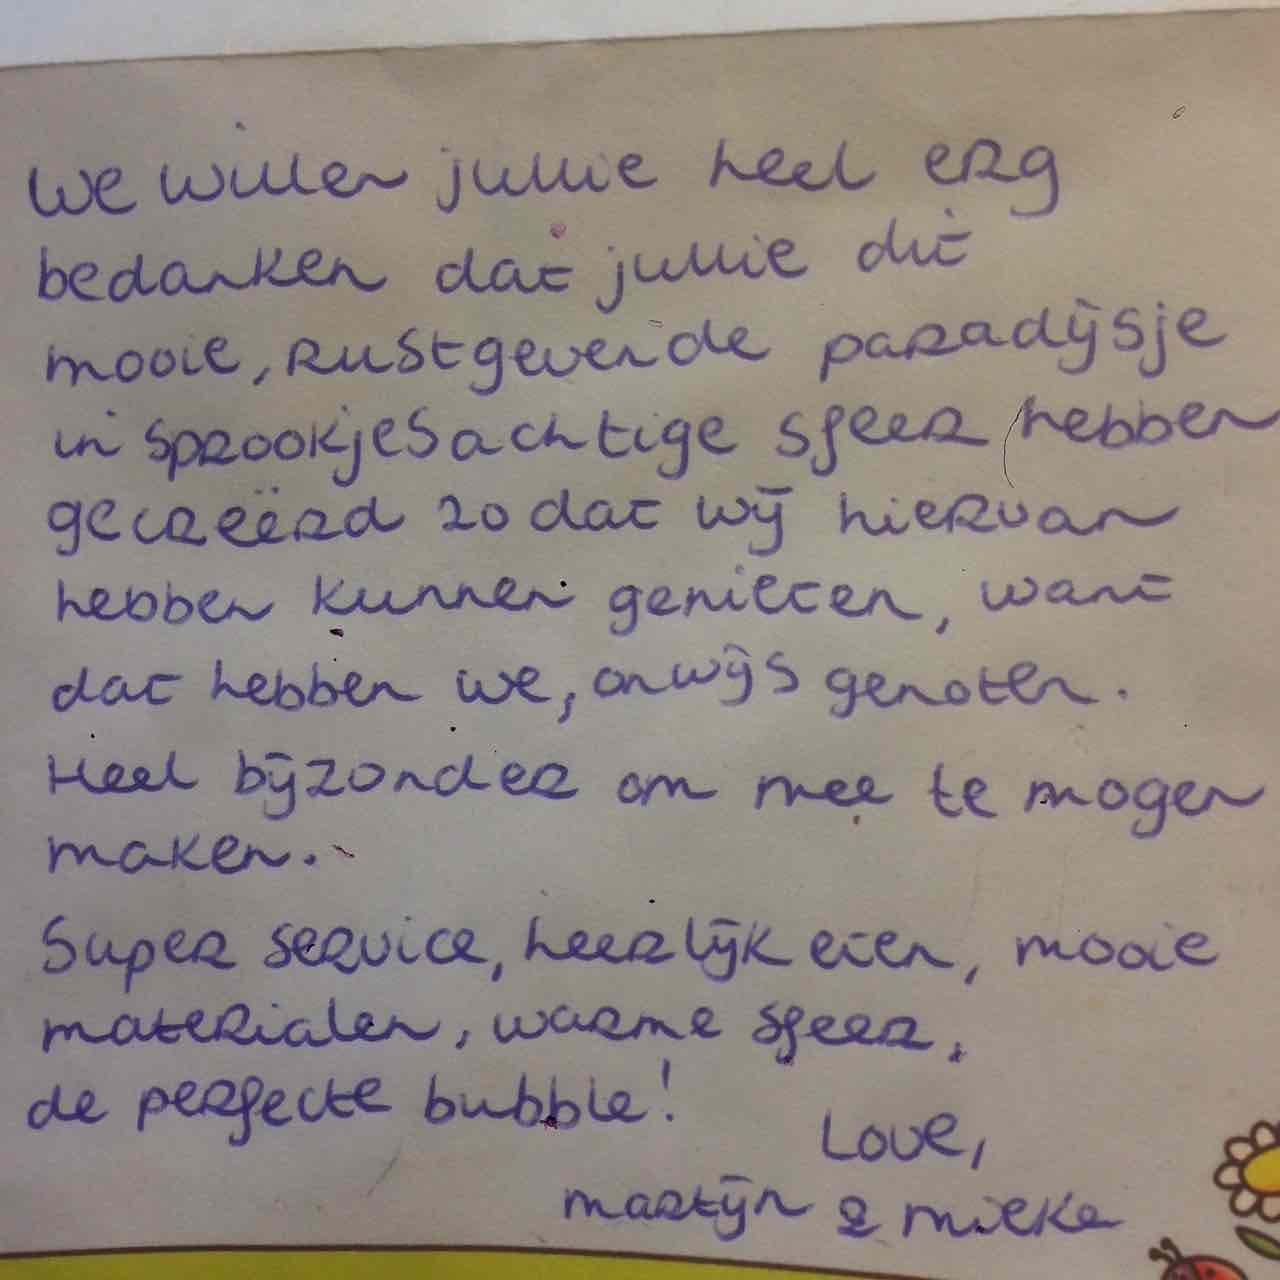 We willen jullie heel erg
bedanken dat jullie dit
mooie, rustgevende paradijsje
in sprookjesachtige sfeer hebben
gecreëerd zodat wij hiervan
hebben kunnen genieten, want
dat hebben we, onwijs genoten.
Heel bijzonder om mee te mogen
maken.
Super service, heerlijk eten, mooie
materialen, warme sfeer,
de perfecte bubble!
Love,
Martijn & Mieke